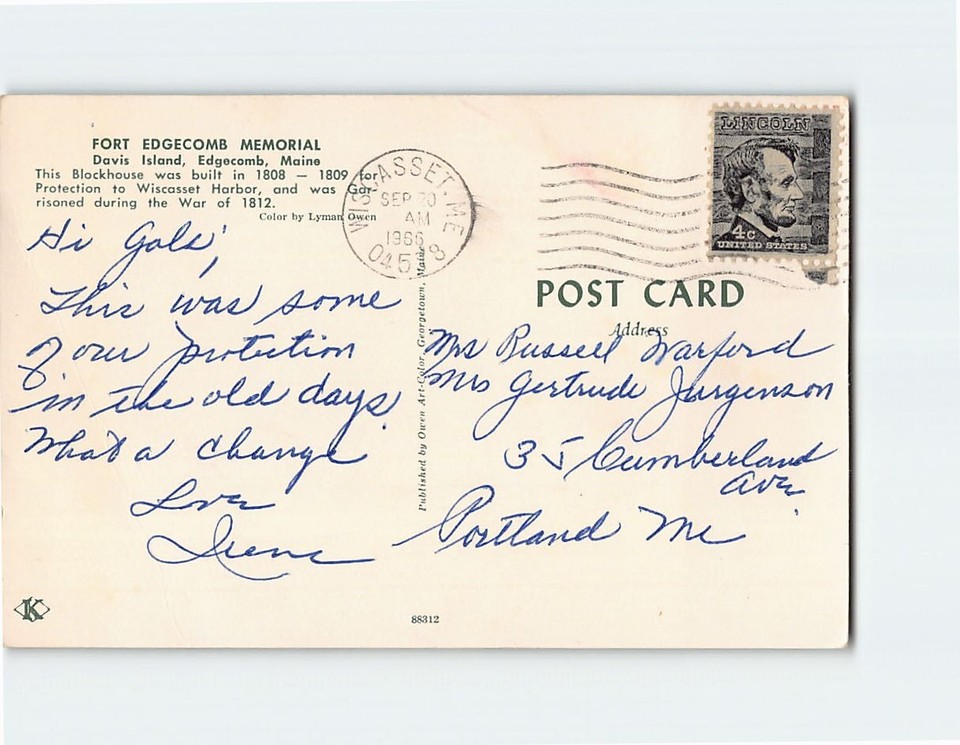 FORT EDGECOMB MEMORIAL
Davis Island, Edgecomb, Maine
This Blockhouse was built in 1808 — 1809 for
Protection to Wiscasset Harbor, and was Gar-
risoned during the War of 1812.
Color by Lyman Owen
Hi Gals,
This was some
of our protection
in the old days
What a change
Love
Irene
K
Published by Owen Art-Color, Georgetown, Maine
88312
WISCASSET, ME
SEP 20
AM
1966
04578
LINCOLN
4c
UNITED STATES
POST CARD
Address
Mrs Russell Warford
Mrs Gertrude Jurgenson
35 Cumberland
Ave
Portland Me